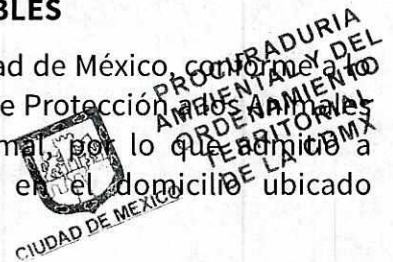 BLES
ad de México, conforme a lo
e Protección a los Animales
mal, por lo que admitió a
en el domicilio ubicado
PROCURADURIA
AMBIENTAL Y DEL
ORDENAMIENTO
TERRITORIAL
DE LA CDMX
CIUDAD DE MEXICO